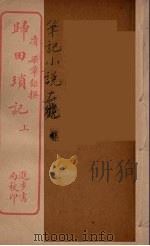 筆記小說大觀
清 梁章鉅撰
歸田瑣記 上
進步書
局校印